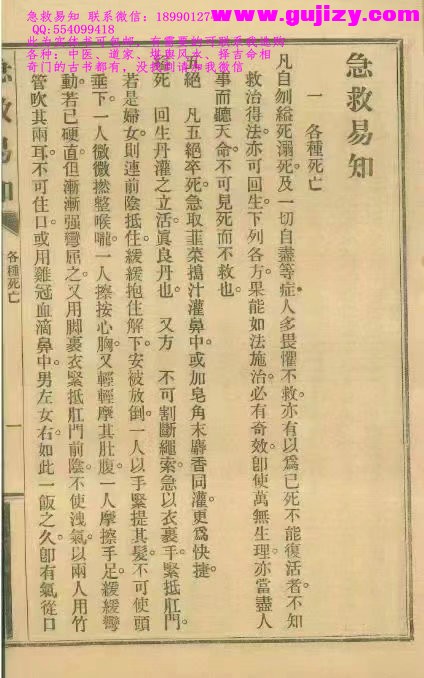 急救易知 联系微信：18990127
www.gujizy.com
QQ:554099418
各种：中医、道家、堪舆风水、择吉命相
奇门的古书都有，没找到请加我微信
急救易知
一 各種死亡
凡自刎縊死溺死及一切自盡等症人多畏懼不救亦有以爲已死不能復活者不知
救治得法亦可回生下列各方果能如法施治必有奇效卽使萬無生理亦當盡人
事而聽天命不可見死而不救也
五絕 凡五絕卒死急取韮菜搗汁灌鼻中或加皂角末麝香同灌更爲快捷
死 回生丹灌之立活眞良丹也 又方 不可割斷繩索急以衣裹手緊抵肛門
若是婦女則連前陰抵住緩緩抱住解下安被放倒一人以手緊提其髮不可使頭
垂下一人微微撚整喉嚨一人擦按心胸又輕輕摩其肚腹一人摩擦手足緩緩彎
動若已硬直但漸漸强彎屈之又用脚裹衣緊抵肛門前陰不使洩氣以兩人用竹
管吹其兩耳不可住口或用雞冠血滴鼻中男左女右如此一飯之久卽有氣從口
急救易知
各種死亡
一